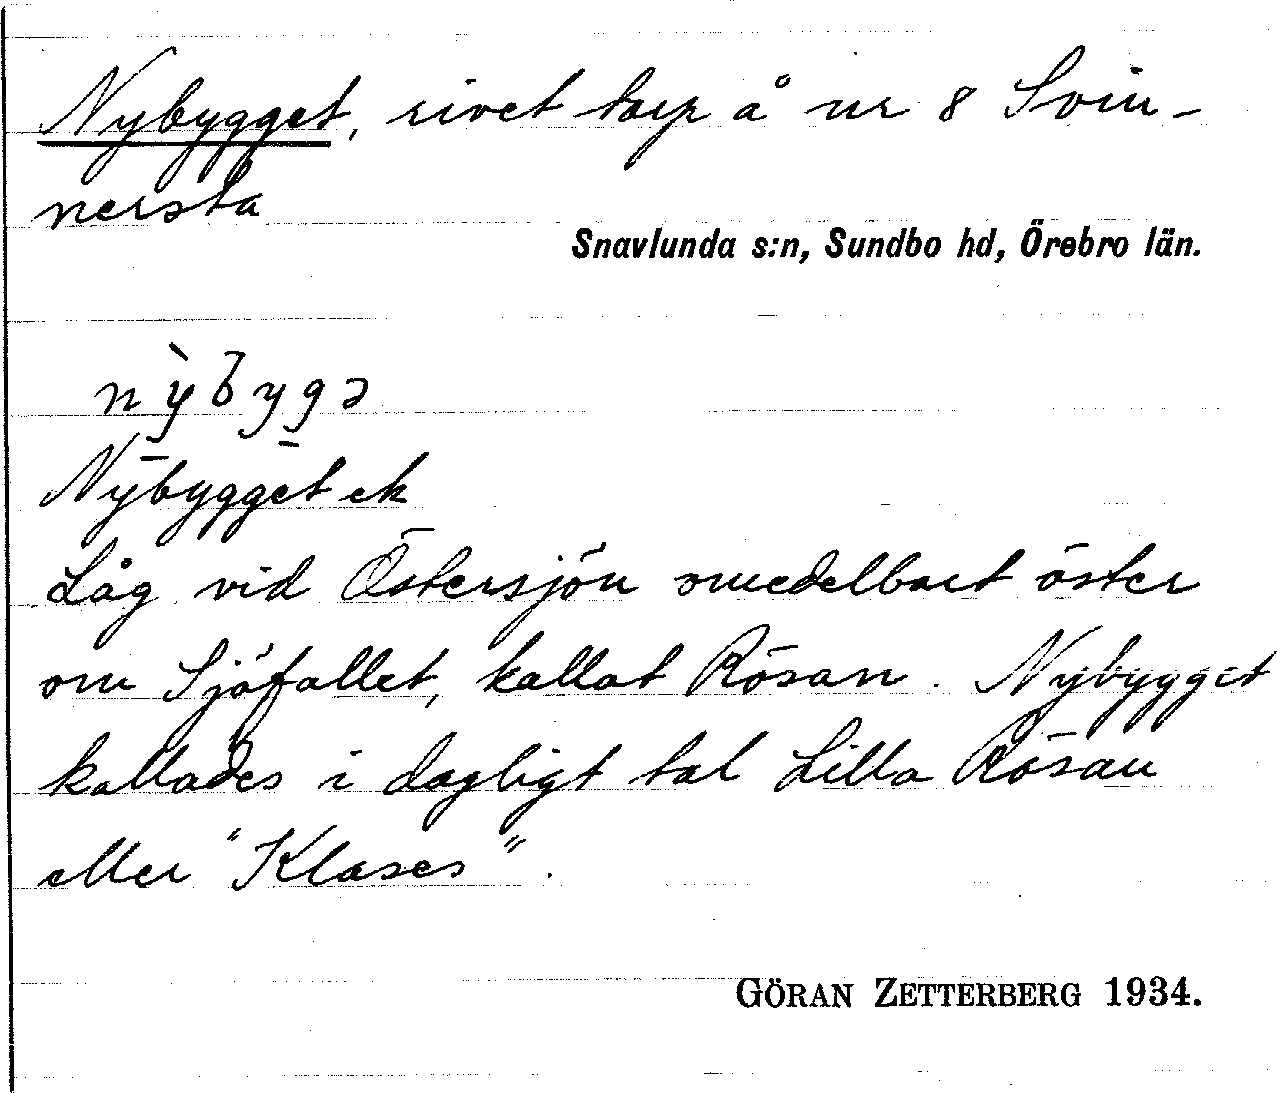 Nybygget, rivet torp å nr 8 Svin-
nersta
Snavlunda s:n, Sundbo hd, Örebro län.
nỳbygə
Nybygget ek
Låg vid Östersjön omedelbart öster
om Sjöfallet, kallat Rösan. Nybygget
kallades i dagligt tal Lilla Rösan
eller "Klases".
GÖRAN ZETTERBERG 1934.